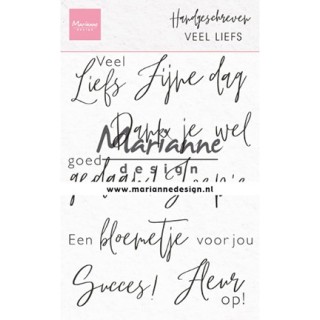 Marianne
DESIGN
Handgeschreven
VEEL LIEFS
Veel
Liefs Fijne dag
Dank je wel
Marianne
goed
design
gedaan
www.mariannedesign.nl
Een bloemetje voor jou
Succes! Fleur
op!